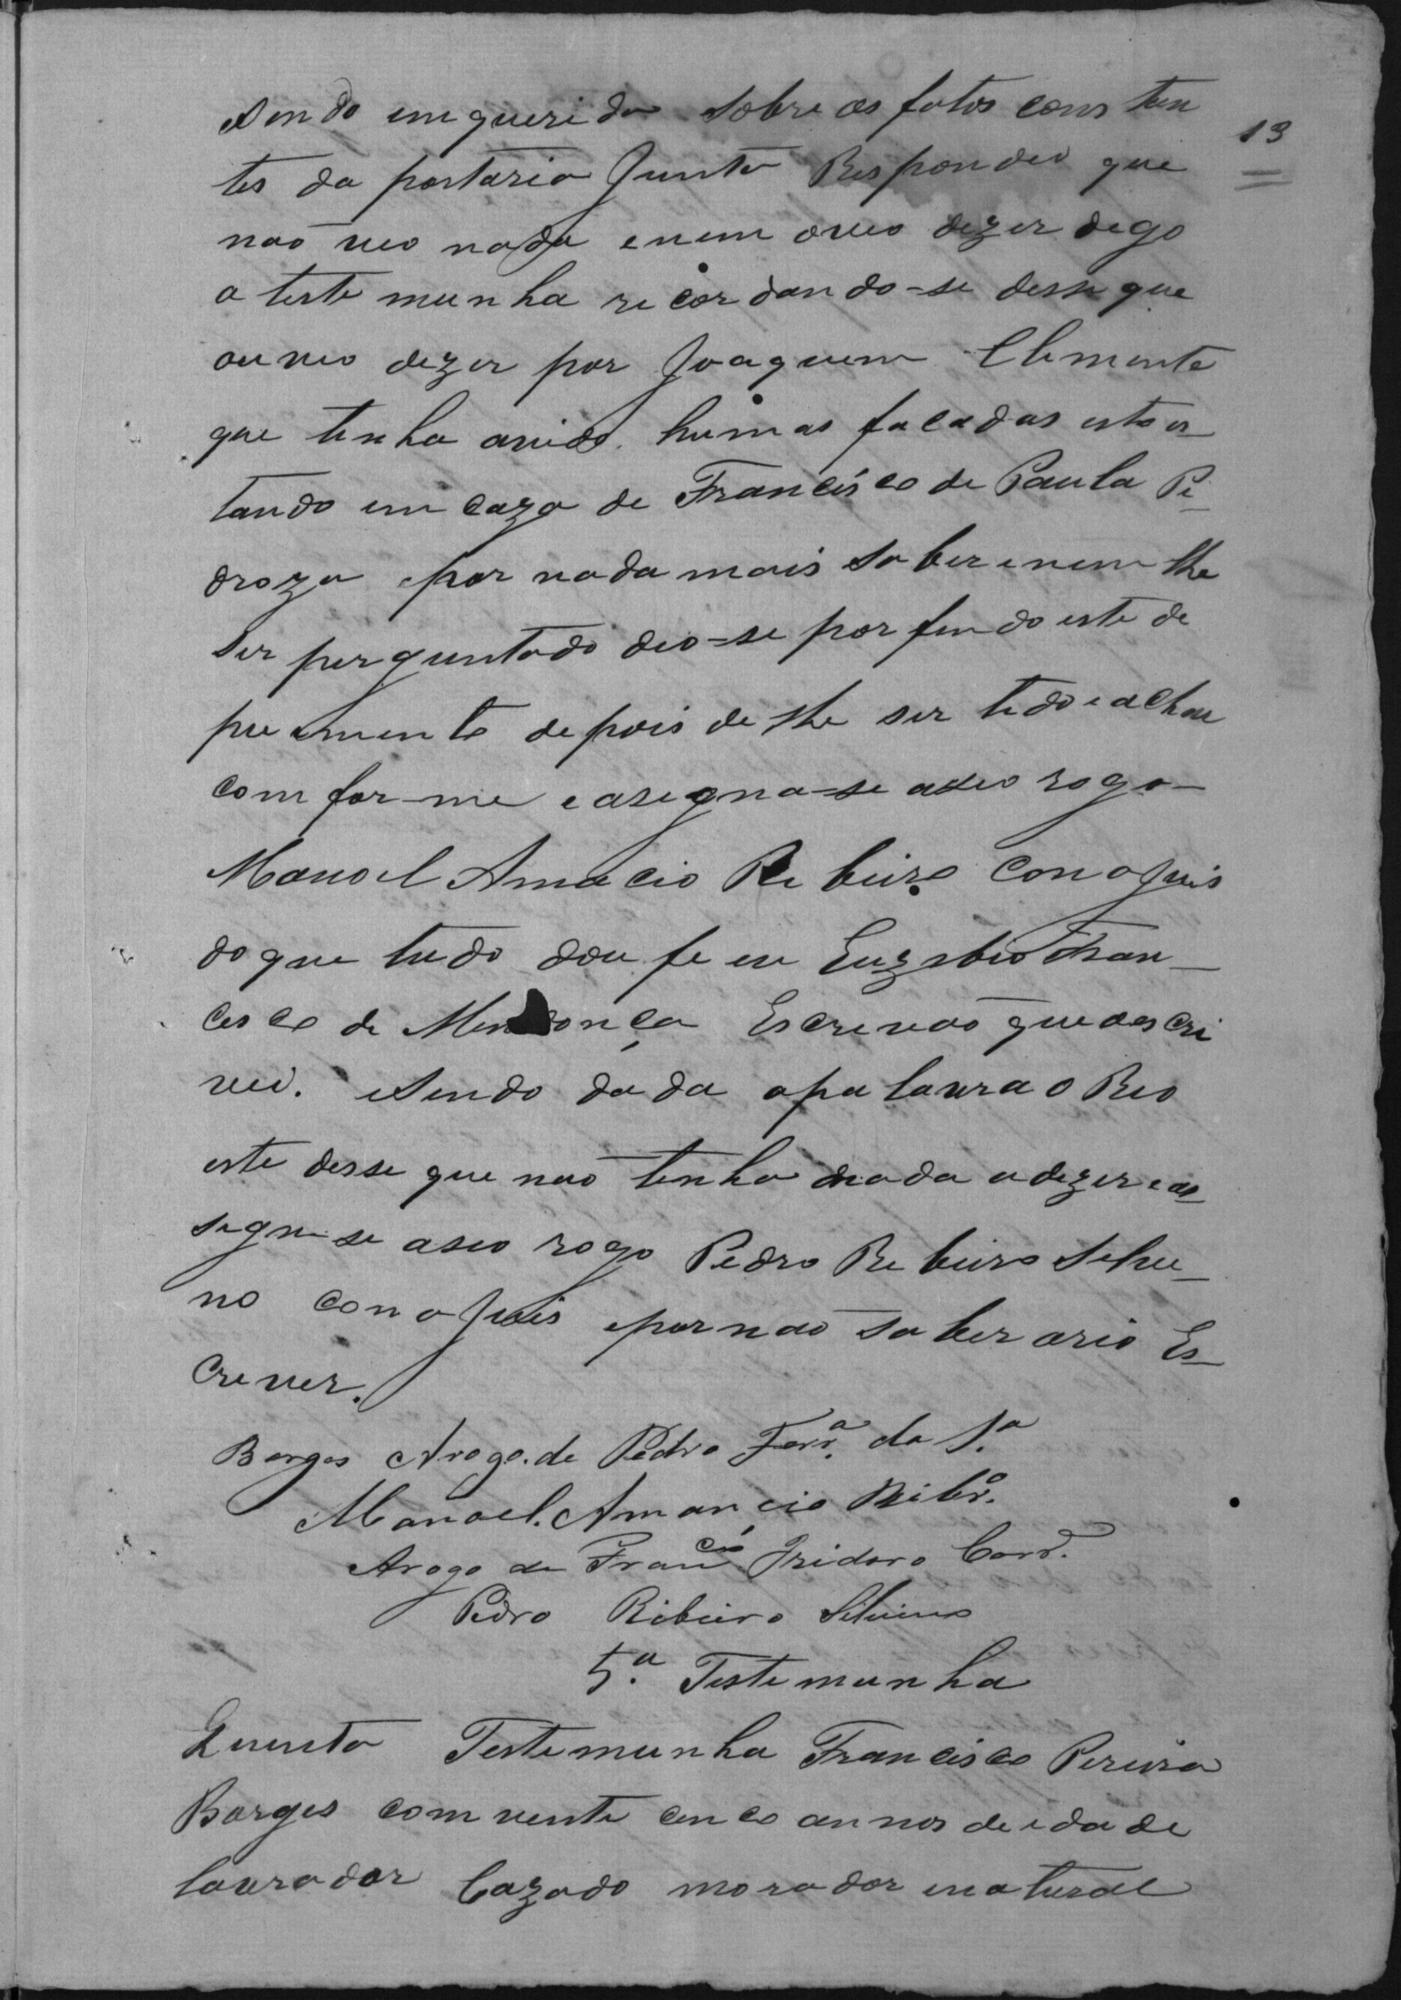 13
Sendo emquerido sobre os fatos consten
tes da portaria junta Respondeo que
nao veo nada enem oveo dezer dego
a testemunha recordando-se desse que
ouveo dezer por Joaquem Clemente
que tenha avido humas facadas esto es
tando em caza de Francisco de Paula Pe
droza epor nada mais saber enem lhe
ser perguntado deo-se por findo este de
puemento depois de lhe ser lido e achou
comforme easegna-se aseo rogo
Manoel Amacio Rebeiro con o juis
doque tudo dou fe eu Euzebio Fran
cesco de Mendonça Escrevão que escri
vei. Sendo dada apalavra o Reo
este desse que nao tenha nada adezer eas
segnse aseo rogo Pedro Rebeiro Selve
no con o juis epor nao saber o reo Es
crever.
Borges Arogo de Pedro Ferr.ª da S.ª
Manoel Amancio Ribr.º
Arogo de Fran.cio Izidoro Corr.ª
Pedro Ribeiro Silvino
5.ª Testemunha
Quenta Testemunha Francisco Pereira
Borges com vente cenco annos de edade
lavrador Cazado morador enatural